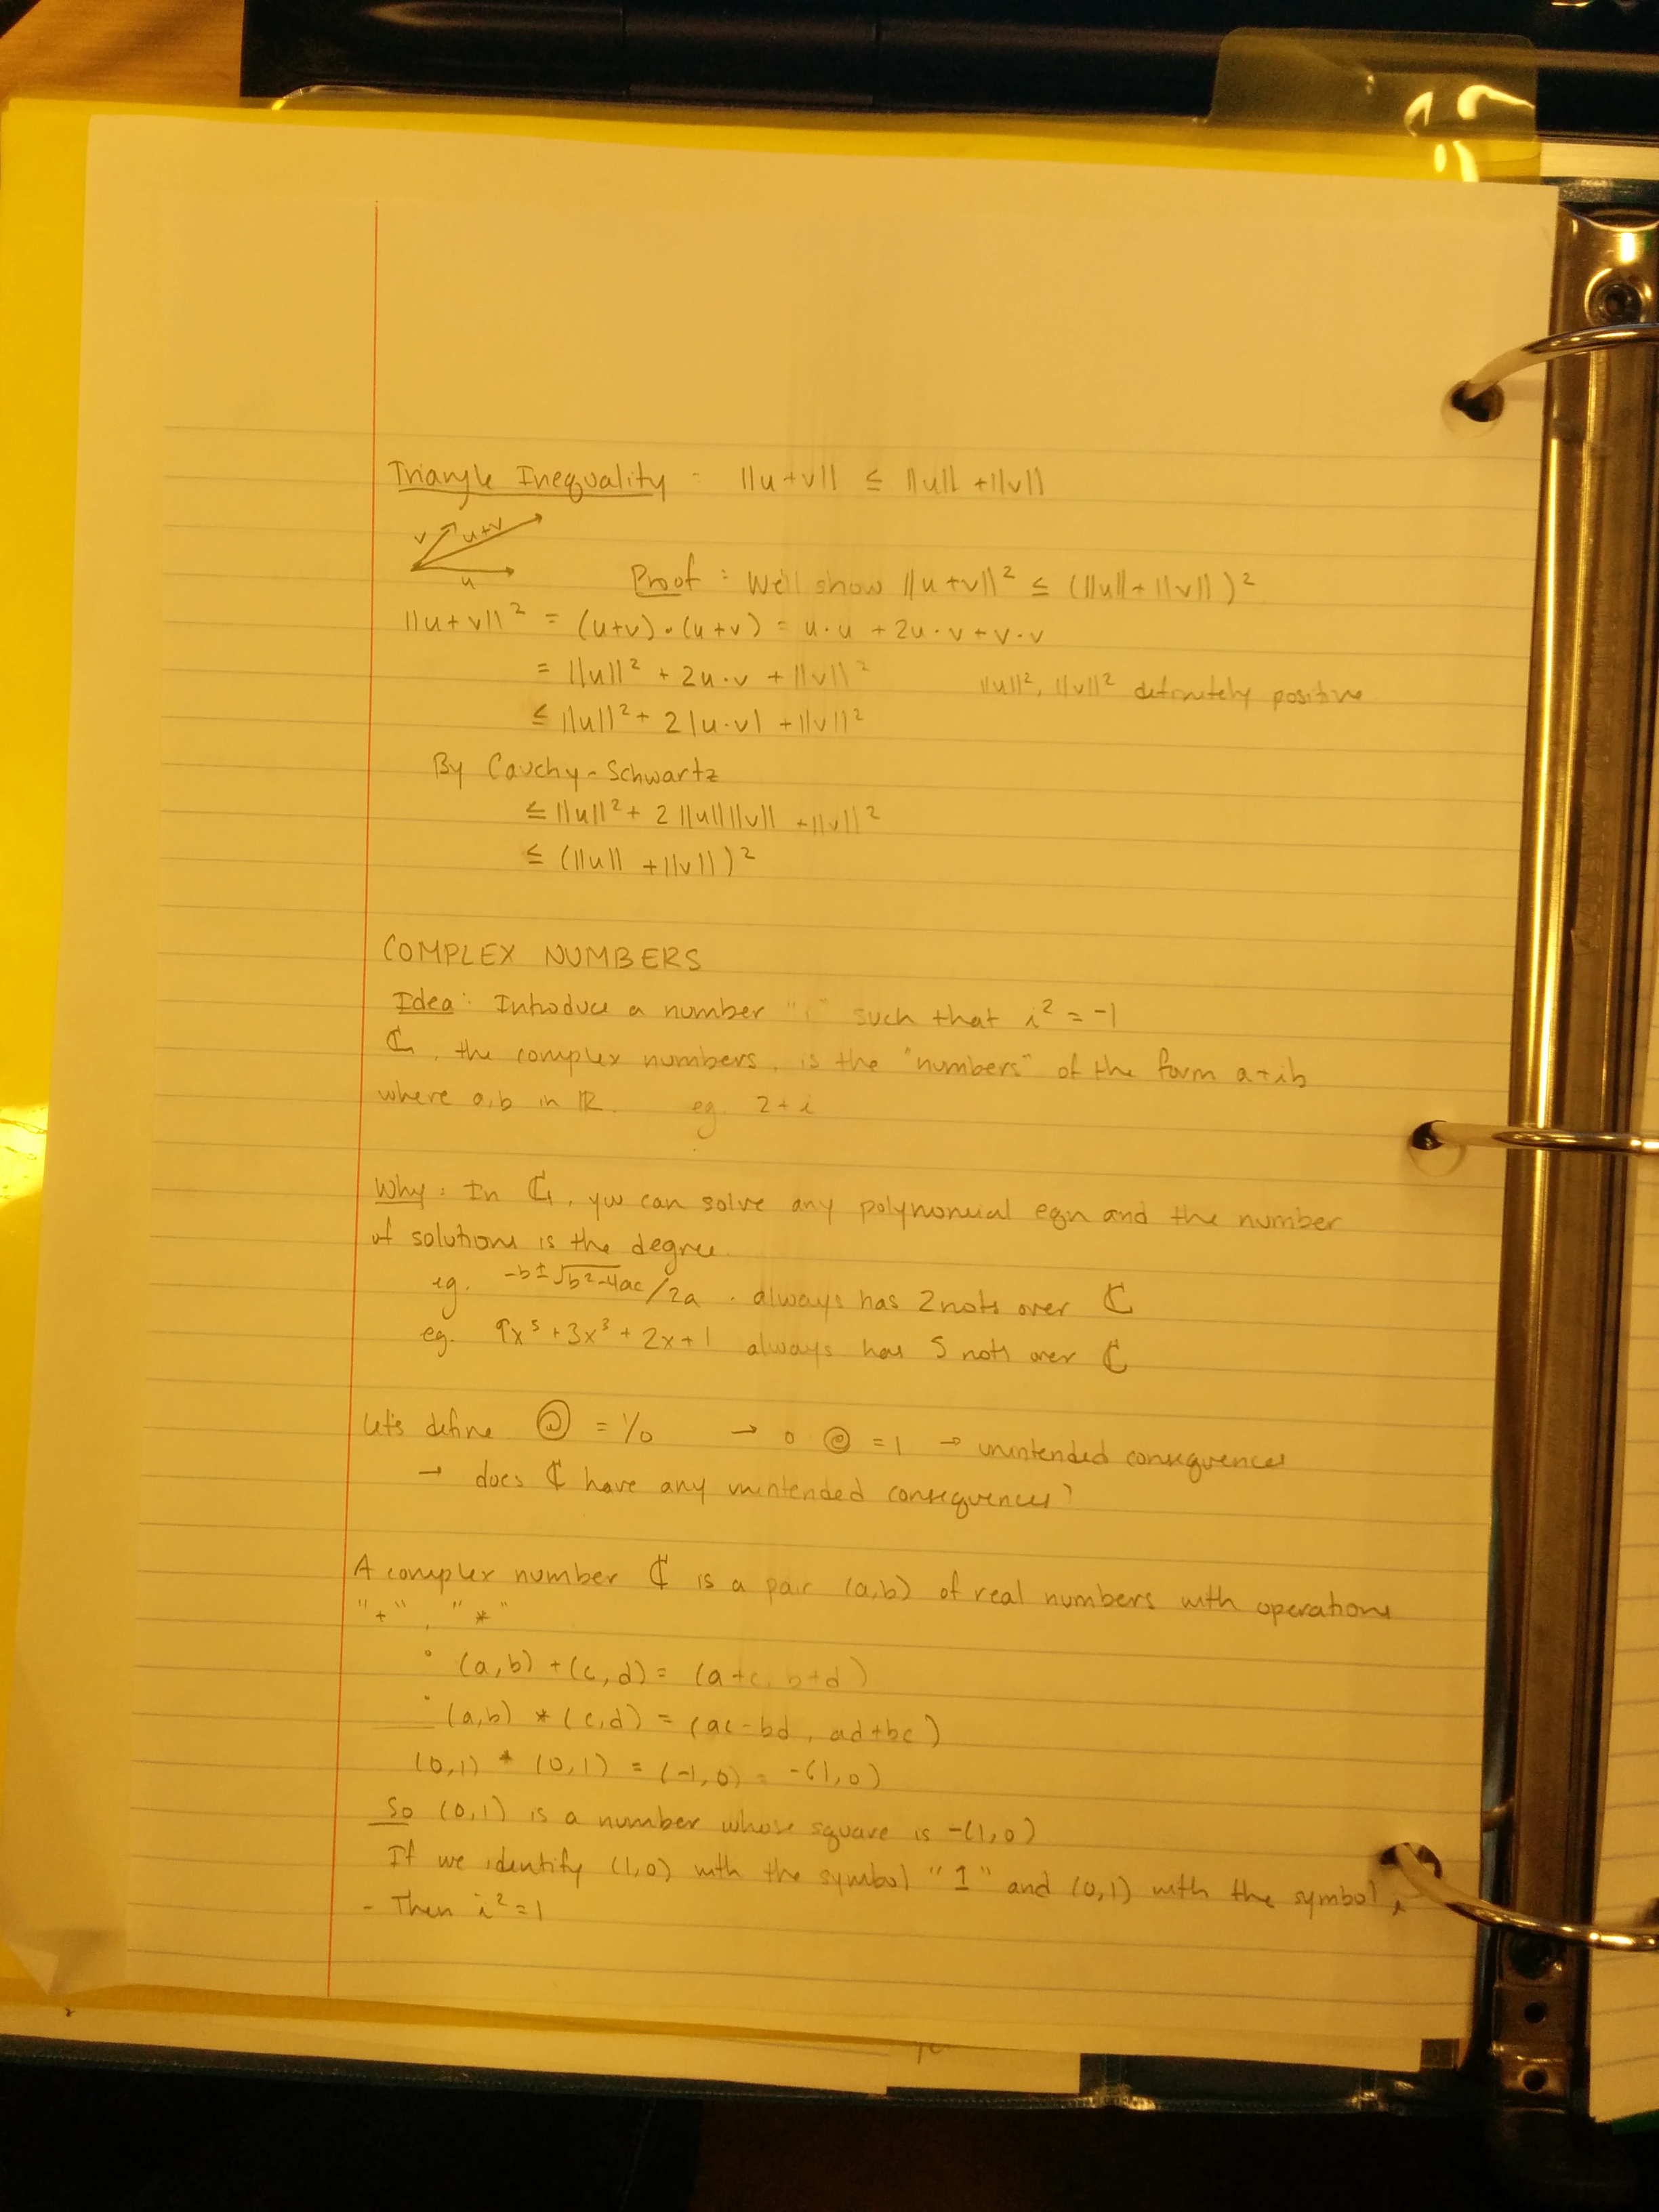 Triangle Inequality : ||u+v|| ≤ ||u|| + ||v||
v u+v
u
Proof : We'll show ||u+v||² ≤ (||u|| + ||v||)²
||u+v||² = (u+v)·(u+v) = u·u + 2u·v + v·v
= ||u||² + 2u·v + ||v||² ||u||², ||v||² definitely positive
≤ ||u||² + 2|u·v| + ||v||²
By Cauchy-Schwartz
≤ ||u||² + 2||u||||v|| + ||v||²
≤ (||u|| + ||v||)²
COMPLEX NUMBERS
Idea: Introduce a number "i" such that i² = -1
ℂ, the complex numbers, is the "numbers" of the form a+ib
where a,b in ℝ. eg. 2+i
Why: In ℂ, you can solve any polynomial eqn and the number
of solutions is the degree.
eg. -b±√b²-4ac/2a . always has 2 roots over ℂ
eg. 9x⁵ + 3x³ + 2x + 1 always has 5 roots over ℂ
Let's define @ = 1/0 → 0 @ = 1 → unintended consequences
→ does ℂ have any unintended consequences?
A complex number ℂ is a pair (a,b) of real numbers with operations
"+", "*"
° (a,b) + (c,d) = (a+c, b+d)
· (a,b) * (c,d) = (ac-bd, ad+bc)
(0,1) * (0,1) = (-1,0) = -(1,0)
So (0,1) is a number whose square is -(1,0)
If we identify (1,0) with the symbol "1" and (0,1) with the symbol i
- Then i² = 1